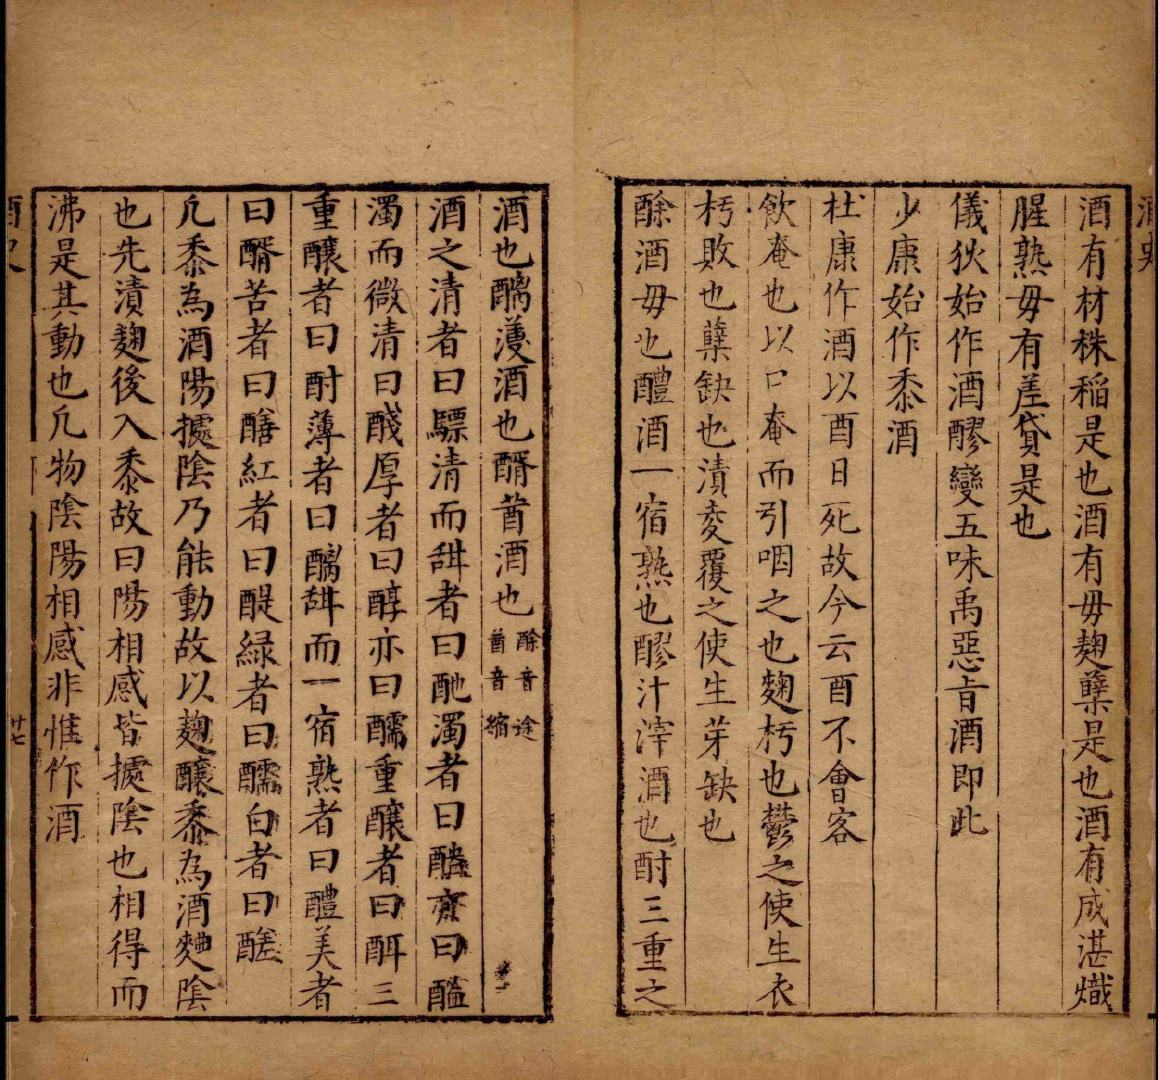 酒有材株稲是也酒有毋麹櫱是也酒有成湛熾
腥熟毋有差貸是也
儀狄始作酒醪變五味禹惡㫖酒即此
少康始作黍酒
杜康作酒以酉日死故今云酉不會客
飲奄也以口奄而引咽之也麴朽也鬱之使生衣
朽敗也櫱缺也漬麦覆之使生芽缺也
酴酒毋也醴酒一宿熟也醪汁滓酒也酎三重之
酒也醨薄酒也醑莤酒也
酴音途
莤音縮
酒之清者曰醥清而甜者曰酏濁者曰醠亦曰醖
濁而微清曰醆厚者曰醇亦曰醹重釀者曰酘三
重釀者曰酎薄者曰醨甜而一宿熟者曰醴美者
曰醑苦者曰𨣚紅者曰醍緑者曰醽白者曰醝
凢黍為酒陽據陰乃能動故以麹釀黍為酒麯陰
也先漬麹後入黍故曰陽相感皆據陰也相得而
沸是其動也凢物陰陽相感非惟作酒
廿七